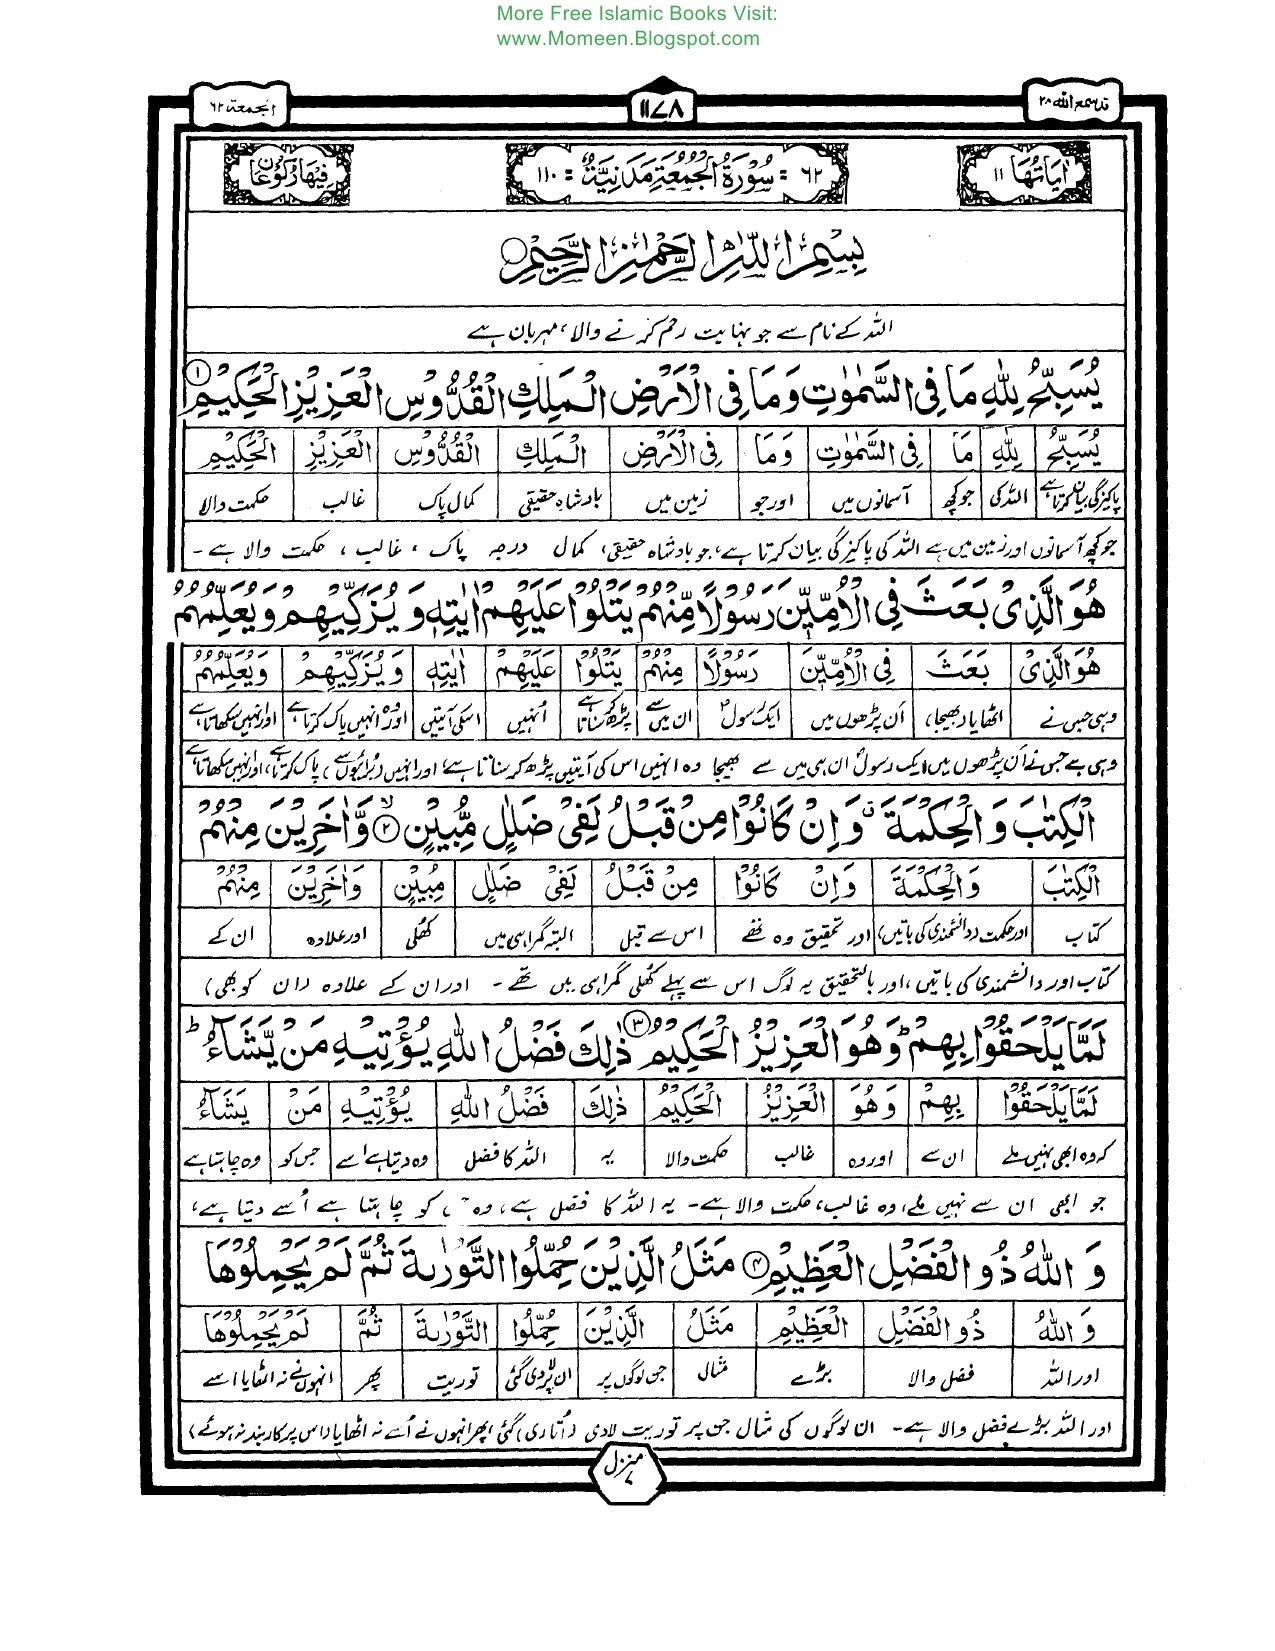 More Free Islamic Books Visit:
www.Momeen.Blogspot.com
قد سمع الله ۲۸
۱۱۷۸
الجمعة ۶۲
اٰيَاتُهَا ۱۱
۶۲ = سُوْرَةُ الْجُمُعَةِ مَدَنِيَّةٌ = ۱۱۰
فِيْهَا رُكُوْعَانِ
بِسْمِ اللّٰهِ الرَّحْمٰنِ الرَّحِيْمِ
اللہ کے نام سے جو نہایت رحم کرنے والا، مہربان ہے
يُسَبِّحُ لِلّٰهِ مَا فِى السَّمٰوٰتِ وَمَا فِى الْاَرْضِ الْمَلِكِ الْقُدُّوْسِ الْعَزِيْزِ الْحَكِيْمِ ۱
يُسَبِّحُ لِلّٰهِ مَا فِى السَّمٰوٰتِ وَمَا فِى الْاَرْضِ الْمَلِكِ الْقُدُّوْسِ الْعَزِيْزِ الْحَكِيْمِ
پاکیزگی بیان کرتا ہے اللہ کی جو کچھ آسمانوں میں اور جو زمین میں بادشاہ حقیقی کمال پاک غالب حکمت والا
جو کچھ آسمانوں اور زمین میں ہے اللہ کی پاکیزگی بیان کرتا ہے، جو بادشاہ حقیقی، کمال درجہ پاک، غالب، حکمت والا ہے۔
هُوَ الَّذِىْ بَعَثَ فِى الْاُمِّيّٖنَ رَسُوْلًا مِّنْهُمْ يَتْلُوْا عَلَيْهِمْ اٰيٰتِهٖ وَيُزَكِّيْهِمْ وَيُعَلِّمُهُمُ
هُوَ الَّذِىْ بَعَثَ فِى الْاُمِّيّٖنَ رَسُوْلًا مِنْهُمْ يَتْلُوْا عَلَيْهِمْ اٰيٰتِهٖ وَيُزَكِّيْهِمْ وَيُعَلِّمُهُمُ
وہی جس نے اٹھایا (بھیجا) اَن پڑھوں میں ایک رسول ان میں سے پڑھ کر سناتا ہے اُنہیں اسکی آیتیں اور وہ انہیں پاک کرتا ہے اور انہیں سکھاتا ہے
وہی ہے جس نے اَن پڑھوں میں ایک رسول ان ہی میں سے بھیجا وہ انہیں اس کی آیتیں پڑھ کر سناتا ہے، اور انہیں (بُرائیوں سے) پاک کرتا ہے، اور انہیں سکھاتا ہے
الْكِتٰبَ وَالْحِكْمَةَ وَاِنْ كَانُوْا مِنْ قَبْلُ لَفِىْ ضَلٰلٍ مُّبِيْنٍ ۲ وَّاٰخَرِيْنَ مِنْهُمْ
الْكِتٰبَ وَالْحِكْمَةَ وَاِنْ كَانُوْا مِنْ قَبْلُ لَفِىْ ضَلٰلٍ مُبِيْنٍ وَاٰخَرِيْنَ مِنْهُمْ
کتاب اور حکمت (دانشمندی کی باتیں) اور تحقیق وہ تھے اس سے قبل البتہ گمراہی میں کھلی اور علاوہ ان کے
کتاب اور دانشمندی کی باتیں، اور بالتحقیق یہ لوگ اس سے پہلے کھلی گمراہی میں تھے۔ اور ان کے علاوہ (ان کو بھی)
لَمَّا يَلْحَقُوْا بِهِمْ وَهُوَ الْعَزِيْزُ الْحَكِيْمُ ۳ ذٰلِكَ فَضْلُ اللّٰهِ يُؤْتِيْهِ مَنْ يَّشَآءُ
لَمَّا يَلْحَقُوْا بِهِمْ وَهُوَ الْعَزِيْزُ الْحَكِيْمُ ذٰلِكَ فَضْلُ اللّٰهِ يُؤْتِيْهِ مَنْ يَشَآءُ
کہ وہ ابھی نہیں ملے ان سے اور وہ غالب حکمت والا یہ اللہ کا فضل وہ دیتا ہے اسے جس کو وہ چاہتا ہے
جو ابھی ان سے نہیں ملے، وہ غالب، حکمت والا ہے۔ یہ اللہ کا فضل ہے، وہ کو چاہتا ہے اُسے دیتا ہے،
وَاللّٰهُ ذُو الْفَضْلِ الْعَظِيْمِ ۴ مَثَلُ الَّذِيْنَ حُمِّلُوا التَّوْرٰىةَ ثُمَّ لَمْ يَحْمِلُوْهَا
وَاللّٰهُ ذُو الْفَضْلِ الْعَظِيْمِ مَثَلُ الَّذِيْنَ حُمِّلُوا التَّوْرٰىةَ ثُمَّ لَمْ يَحْمِلُوْهَا
اور اللہ فضل والا بڑے مثال جن لوگوں پر ان پر لادی گئی توریت پھر انہوں نے نہ اٹھایا اسے
اور اللہ بڑے فضل والا ہے۔ ان لوگوں کی مثال جن پر توریت لادی (اُتاری) گئی پھر انہوں نے اُسے نہ اٹھایا (اس پر کاربند نہ ہوئے)
منزل ۷